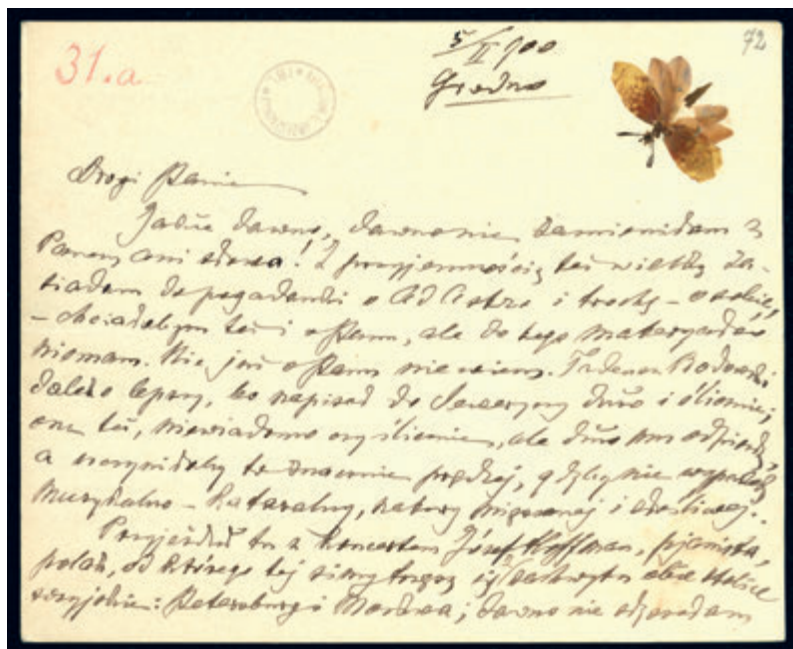 31.a
5/II 900
72
Grodno
Drogi Panie
Jakże dawno, dawno nie zamieniłam z
Panem ani słowa! Z przyjemnością też wielką za-
siadam do pogadanki o Ad Astra i trochę - o sobie,
- chciałabym też i o Panu, ale do tego materyału
niemam. Nic już o Panu nie wiem. Tadeusz Bochwic
daleko lepszy, bo napisał do Seweryny dużo i ślicznie;
ona też, niewiadomo czy ślicznie, ale dużo mu odpisze,
a uczyniłaby to znacznie prędzej, gdyby nie
muzykalno - kataralny, natury
Przyjeżdżał tu z koncertem Józef Hoffman, pjanista,
polak, od którego tej zimy trzęsą się z zachwytu obie stolice
rosyjskie: Petersburg i Moskwa; dawno nie